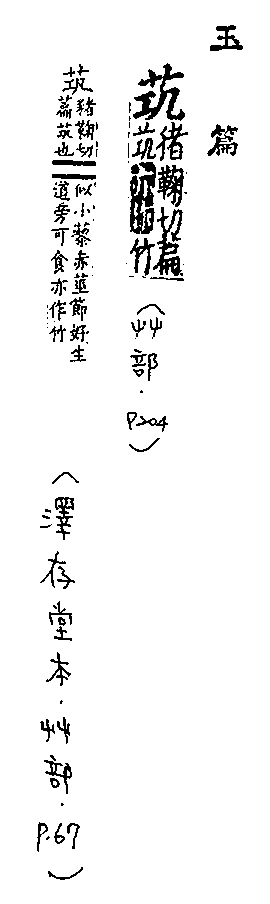 玉篇
茿
猪鞠切萹
茿竹
(艸部.P204)
茿
豬鞠切
萹茿也
似小藜赤莖節好生
道旁可食亦作竹
(澤存堂本.艸部.P.67)